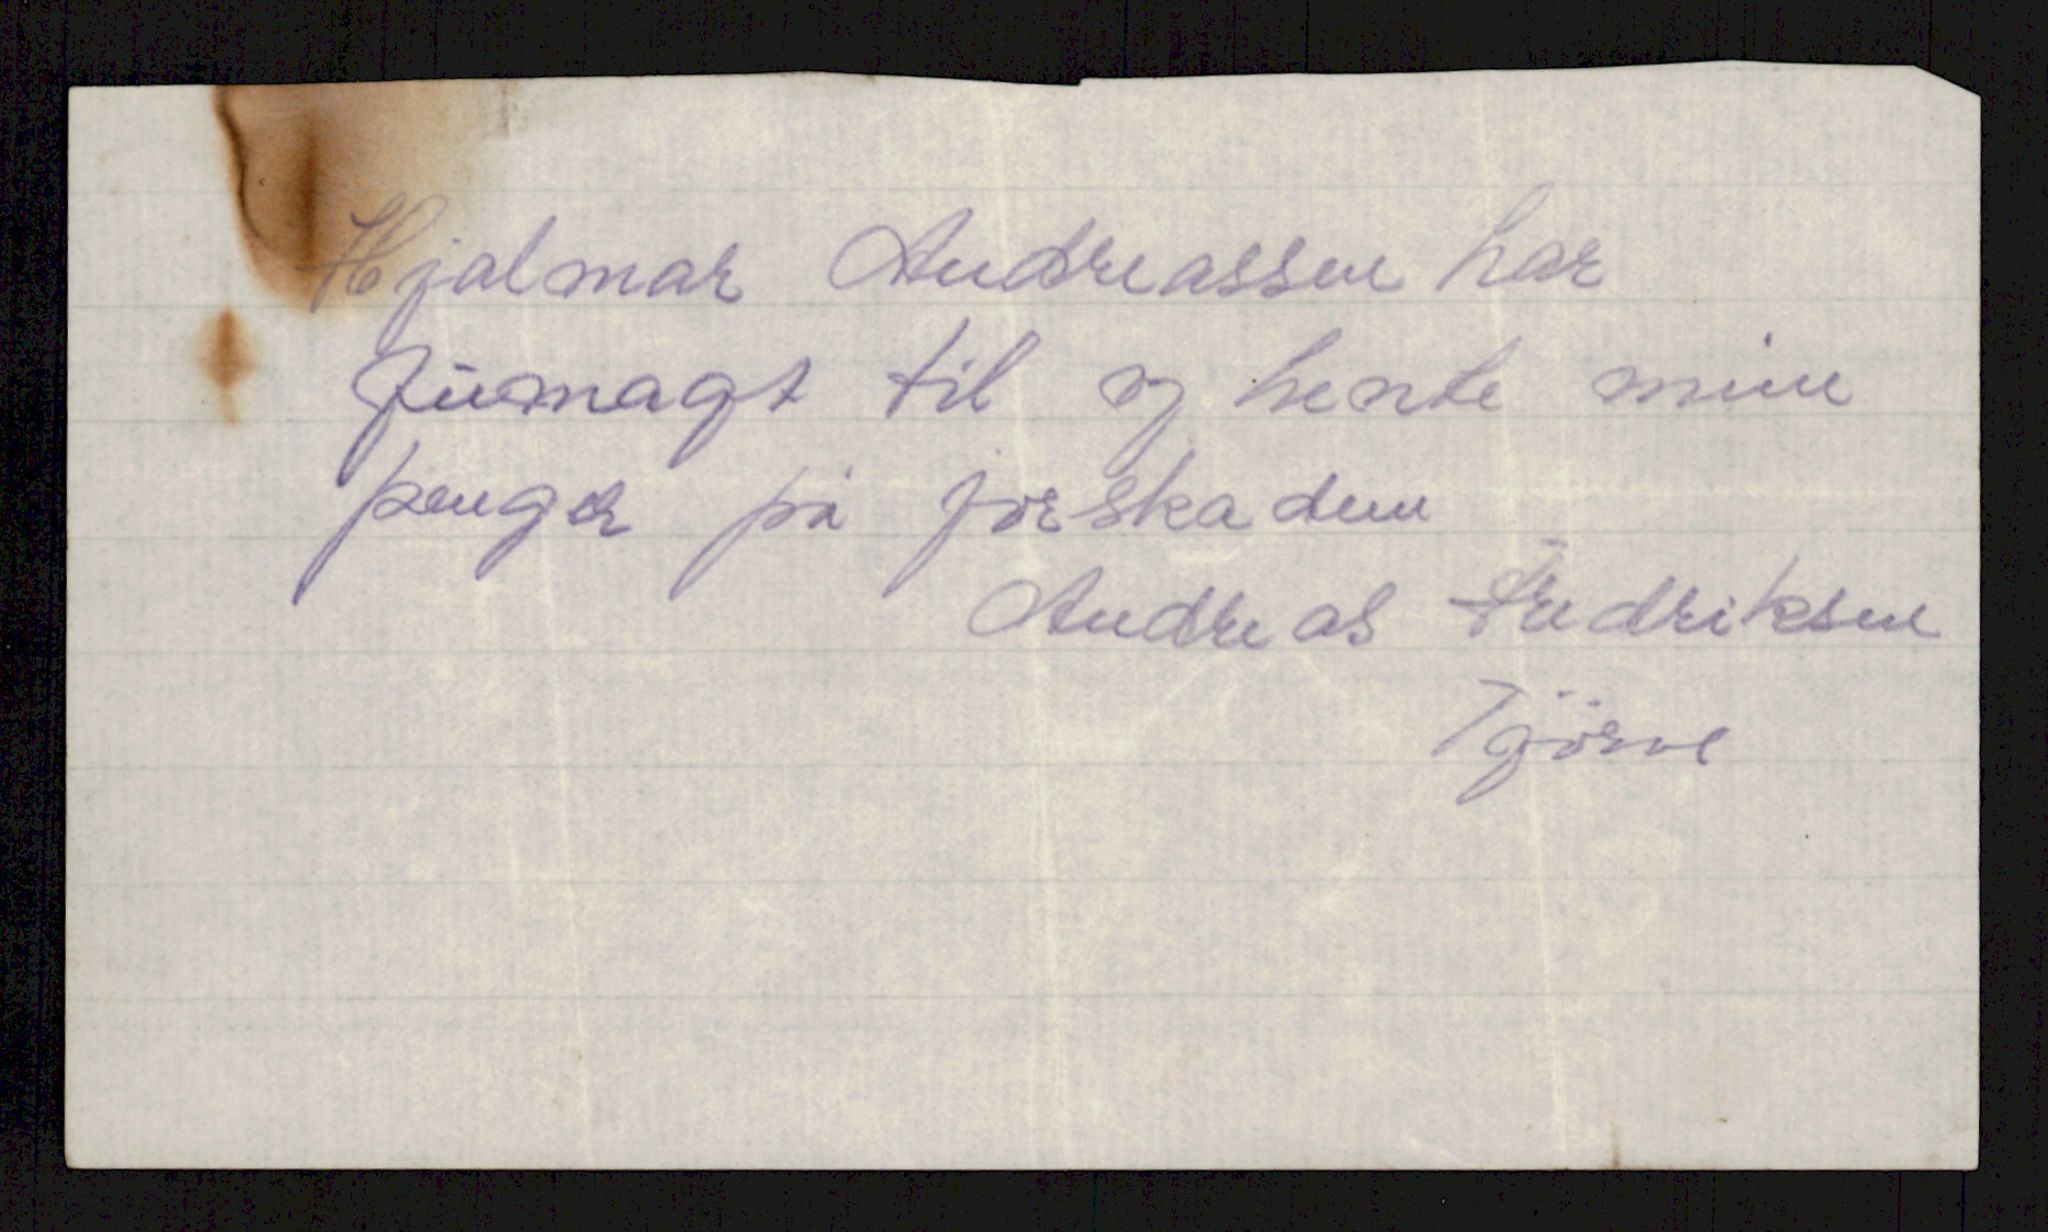 Hjalmar Andreassen har
fulmagt til og hente mine
penger på jorskaden
Andreas Fredriksen
Tjörve